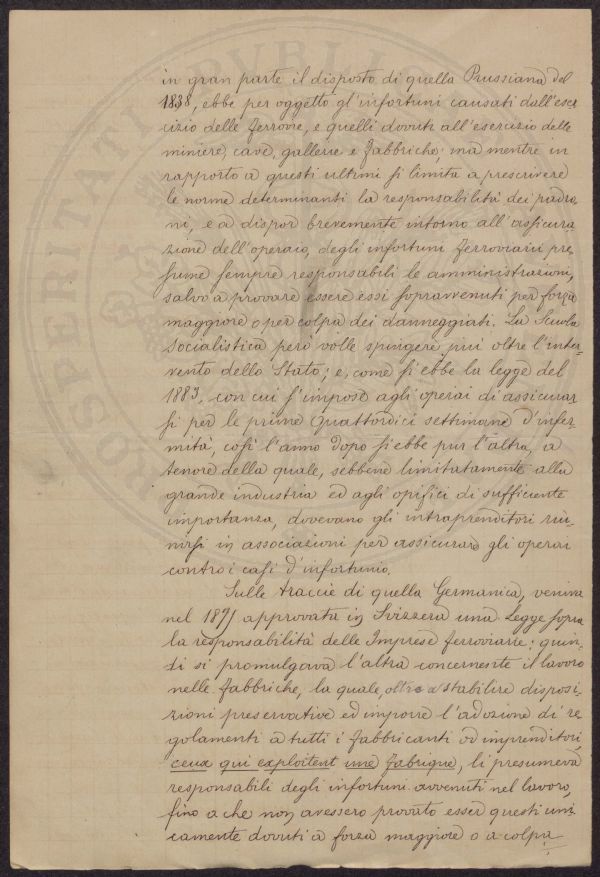 in gran parte il disposto di quella Prussiana del
1838, ebbe per oggetto gl'infortuni causati dall'eser
cizio delle ferrovie, e quelli dovuti all'esercizio delle
miniere, cave, gallerie e fabbriche; ma mentre in
rapporto a questi ultimi si limita a prescrivere
le norme determinanti la responsabilità dei padro-
ni, e a dispor brevemente intorno all'assicura
zione dell'operaio, degli infortuni ferroviari pre-
sume sempre responsabili le amministrazioni,
salvo a provare essere essi sopravvenuti per forza
maggiore o per colpa dei danneggiati. La Scuola
Socialistica però volle spingere più oltre l'inter-
vento dello Stato; e, come si ebbe la legge del
1883, con cui s'impose agli operai di assicurar
si per le prime quattordici settimane d'infer-
mità, così l'anno dopo si ebbe pur l'altra, a
tenore della quale, sebbene limitatamente alla
grande industria ed agli opifici di sufficiente
importanza, dovevano gli intraprenditori riu-
nirsi in associazioni per assicurare gli operai
contro i casi d'infortunio.
Sulle traccie di quella Germanica, veniva
nel 1871 approvata in Svizzera una Legge sopra
la responsabilità delle Imprese ferroviarie; quin-
di si promulgava l'altra concernente il lavoro
nelle fabbriche, la quale, oltre a stabilire disposi-
zioni preservative ed imporre l'adozione di re
golamenti a tutti i fabbricanti od imprenditori,
ceux qui exploitent une fabrique, li presumeva
responsabili degli infortuni avvenuti nel lavoro,
fino a che non avessero provato esser questi uni-
camente dovuti a forza maggiore o a colpa
PROSPERITATI PVBLICAE